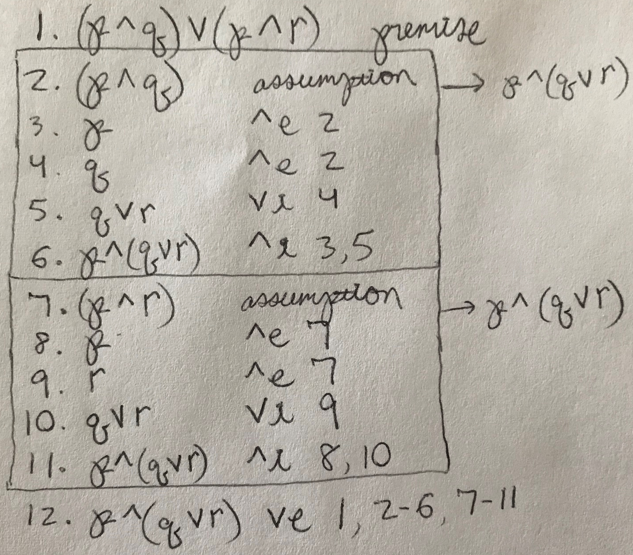 1. (p ∧ q) ∨ (p ∧ r) premise
2. (p ∧ q) assumption → p ∧ (q ∨ r)
3. p ∧e 2
4. q ∧e 2
5. q ∨ r ∨i 4
6. p ∧ (q ∨ r) ∧i 3,5
7. (p ∧ r) assumption → p ∧ (q ∨ r)
8. p ∧e 7
9. r ∧e 7
10. q ∨ r ∨i 9
11. p ∧ (q ∨ r) ∧i 8, 10
12. p ∧ (q ∨ r) ∨e 1, 2-6, 7-11